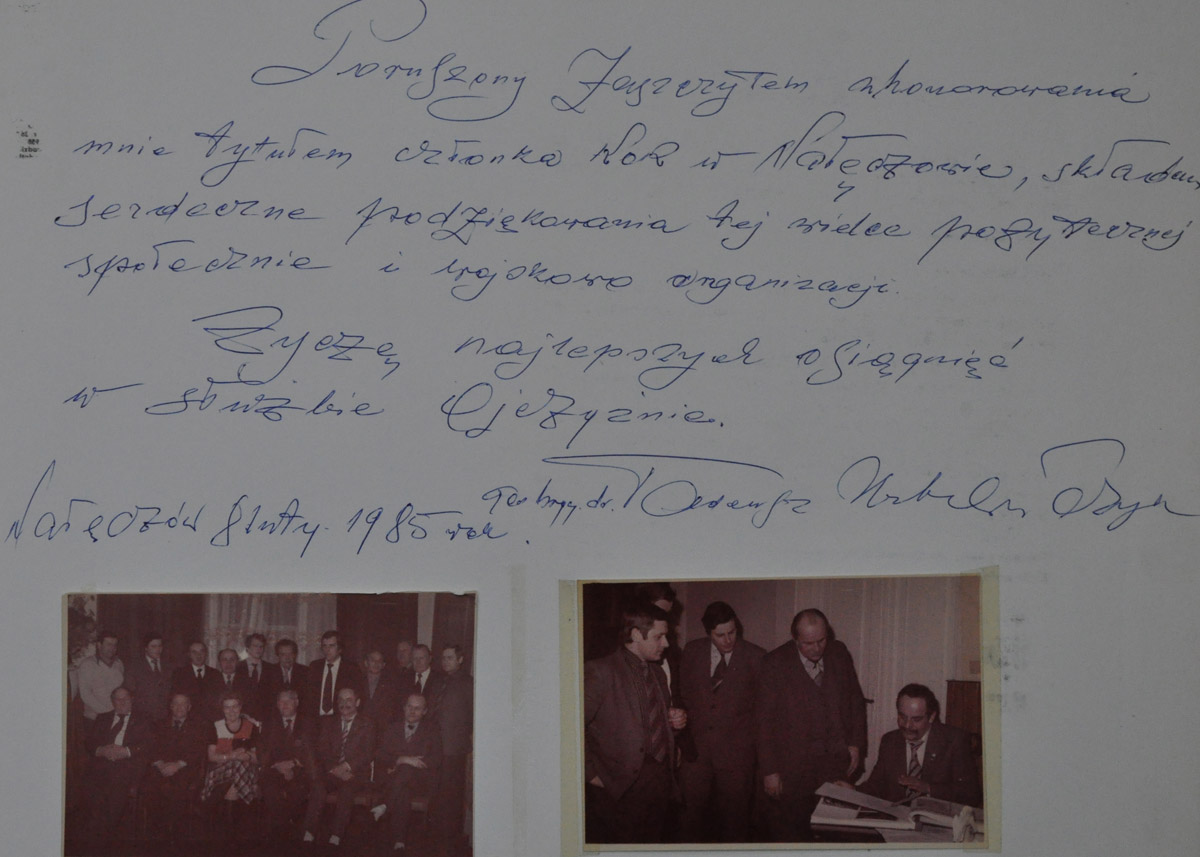 Poruszony Zaszczytem uhonorowania
mnie tytułem członka KOR w Nałęczowie, składam
serdeczne podziękowania tej wielce pożytecznej
społecznie i wojskowo organizacji.
Życzę najlepszych osiągnięć
w służbie Ojczyźnie.
gen bryg. dr. Tadeusz
Nałęczów luty. 1985 rok.